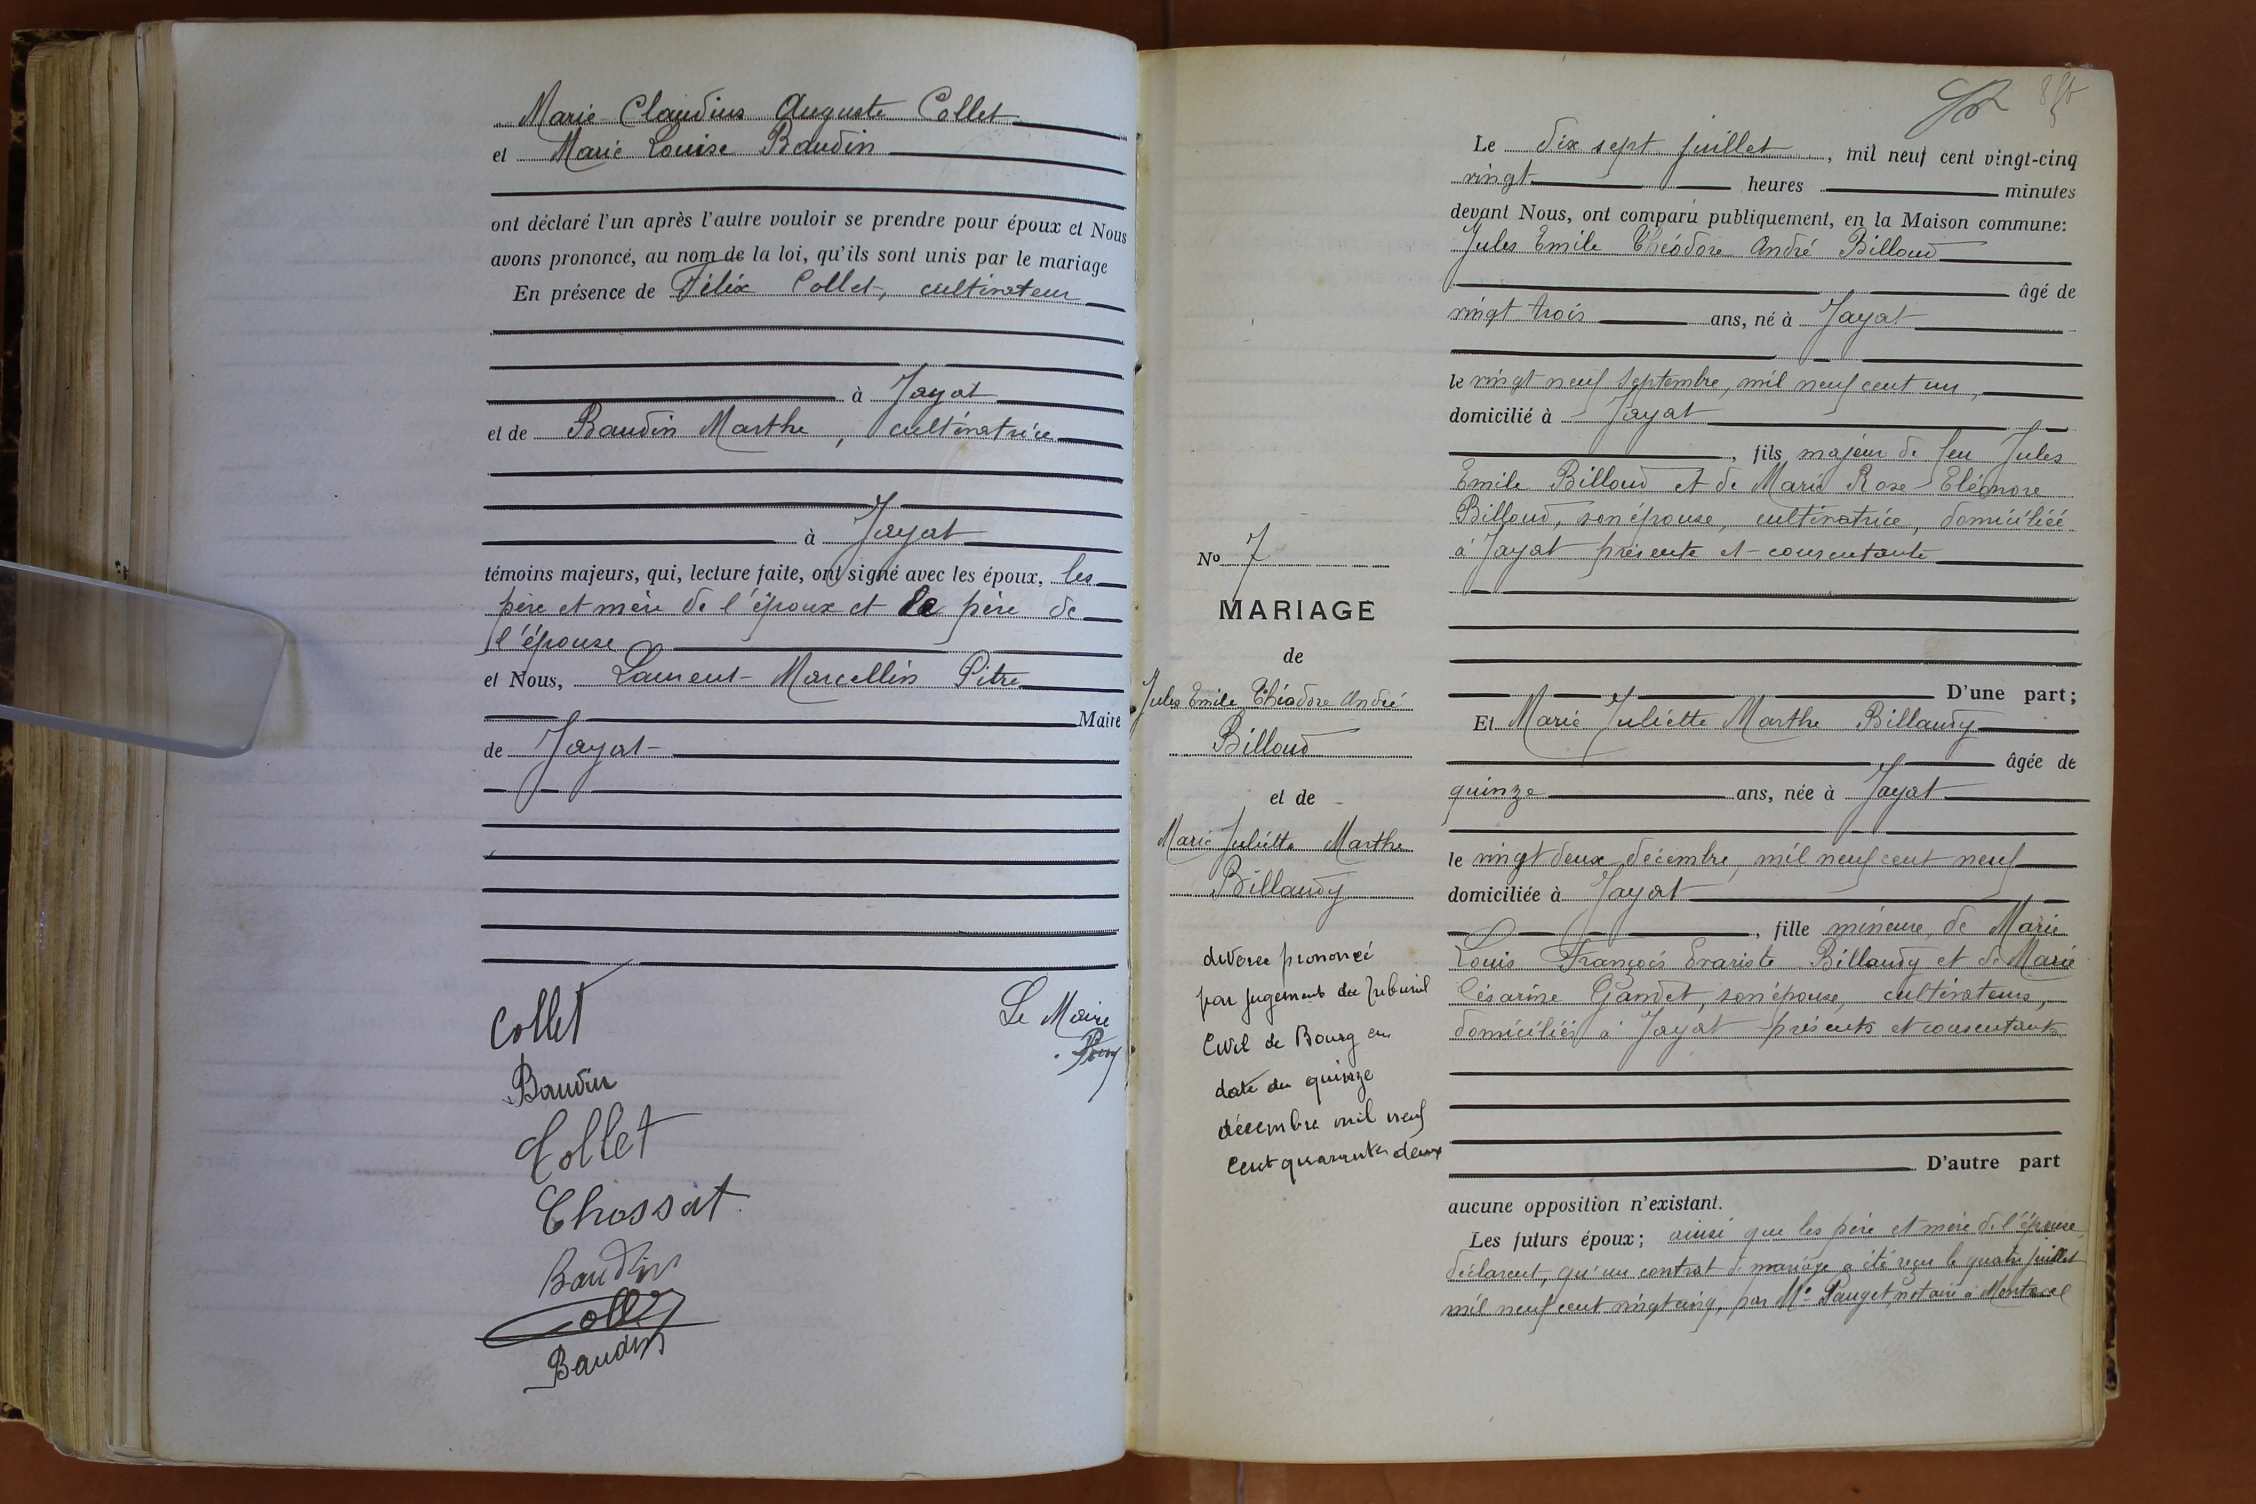 Marie Claudius Auguste Collet
et Marie Louise Baudin
ont déclaré l'un après l'autre vouloir se prendre pour époux et Nous
avons prononcé, au nom de la loi, qu'ils sont unis par le mariage
En présence de Félix Collet, cultivateur
à Jayat
et de Baudin Marthe, cultivatrice
à Jayat
témoins majeurs, qui, lecture faite, ont signé avec les époux, les
père et mère de l'époux et le père de
l'épouse
et Nous, Laurent Marcellin Pitre
Maire
de Jayat
Collet
Le Maire
Baudin
Collet
Chossat
Baudin
Collet
Baudin
Le dix sept juillet, mil neuf cent vingt-cinq
vingt heures minutes
devant Nous, ont comparu publiquement, en la Maison commune:
Jules Emile Théodore André Billoud
âgé de
vingt trois ans, né à Jayat
le vingt neuf septembre, mil neuf cent un,
domicilié à Jayat
, fils majeur de feu Jules
Emile Billoud et de Marie Rose Eléonore
Billoud, son épouse, cultivatrice, domiciliée
à Jayat présente et consentante
D'une part;
Et Marie Juliette Marthe Billaudy
âgée de
quinze ans, née à Jayat
le vingt deux décembre, mil neuf cent neuf
domiciliée à Jayat
, fille mineure, de Marie
Louis François Evariste Billaudy et de Marie
Césarine Gandet, son épouse, cultivateurs,
domiciliés à Jayat présents et consentants
D'autre part
aucune opposition n'existant.
Les futurs époux; ainsi que les père et mère de l'épouse,
déclarent, qu'un contrat de mariage a été reçu le quatre juillet
mil neuf cent vingt cinq, par Me Pauget, notaire à Montrevel
No 7
MARIAGE
de
Jules Emile Théodore André
Billoud
et de
Marie Juliette Marthe
Billaudy
divorce prononcé
par jugement du tribunal
Civil de Bourg en
date du quinze
décembre mil neuf
cent quarante deux